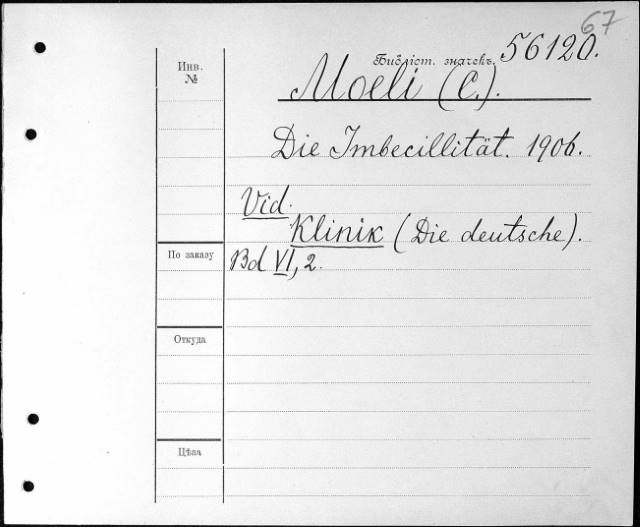 67
Библіот. значекъ. 56120.
Инв.
№
Moeli (C.).
Die Imbecillität. 1906.
Vid.
Klinik (Die deutsche).
По заказу
Bd VI, 2.
Откуда
Цѣна